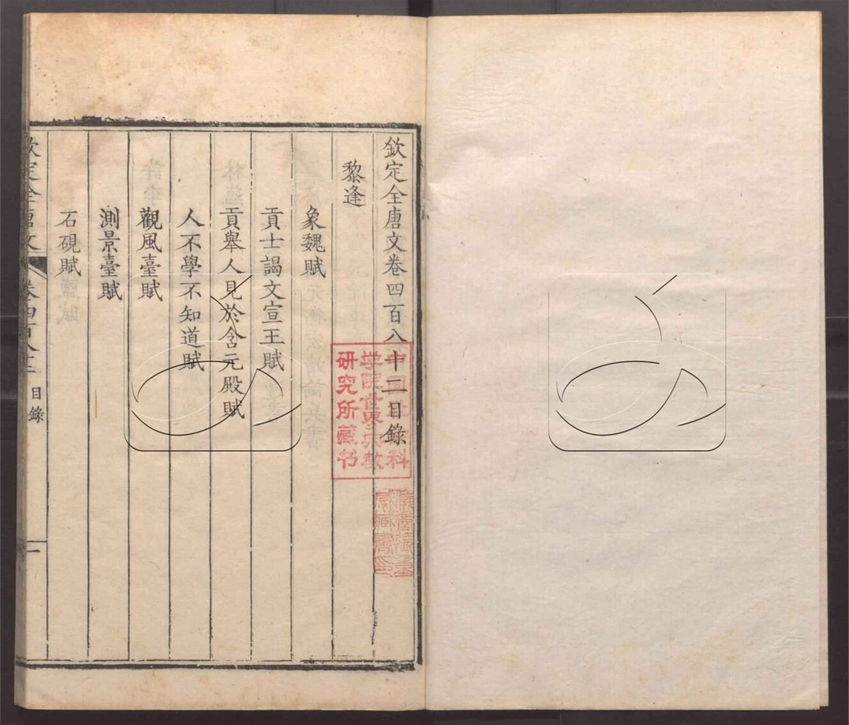 欽定全唐文卷四百八十二目錄
黎逢
象魏賦
貢士謁文宣王賦
貢舉人見於含元殿賦
人不學不知道賦
觀風臺賦
測景臺賦
石硯賦
欽定全唐文
卷四百八十二 目錄
一
中國
科
学院世界宗教
研究所藏书